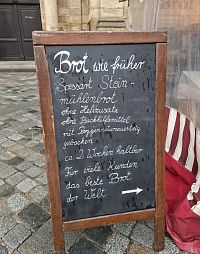 Brot wie früher
Spessart Stein-
mühlenbrot
ohne Hefezusatz
ohne Backhilfsmittel
mit Roggennatursauerteig
gebacken
ca 2 Wochen haltbar
Für viele Kunden
das beste Brot
der Welt →